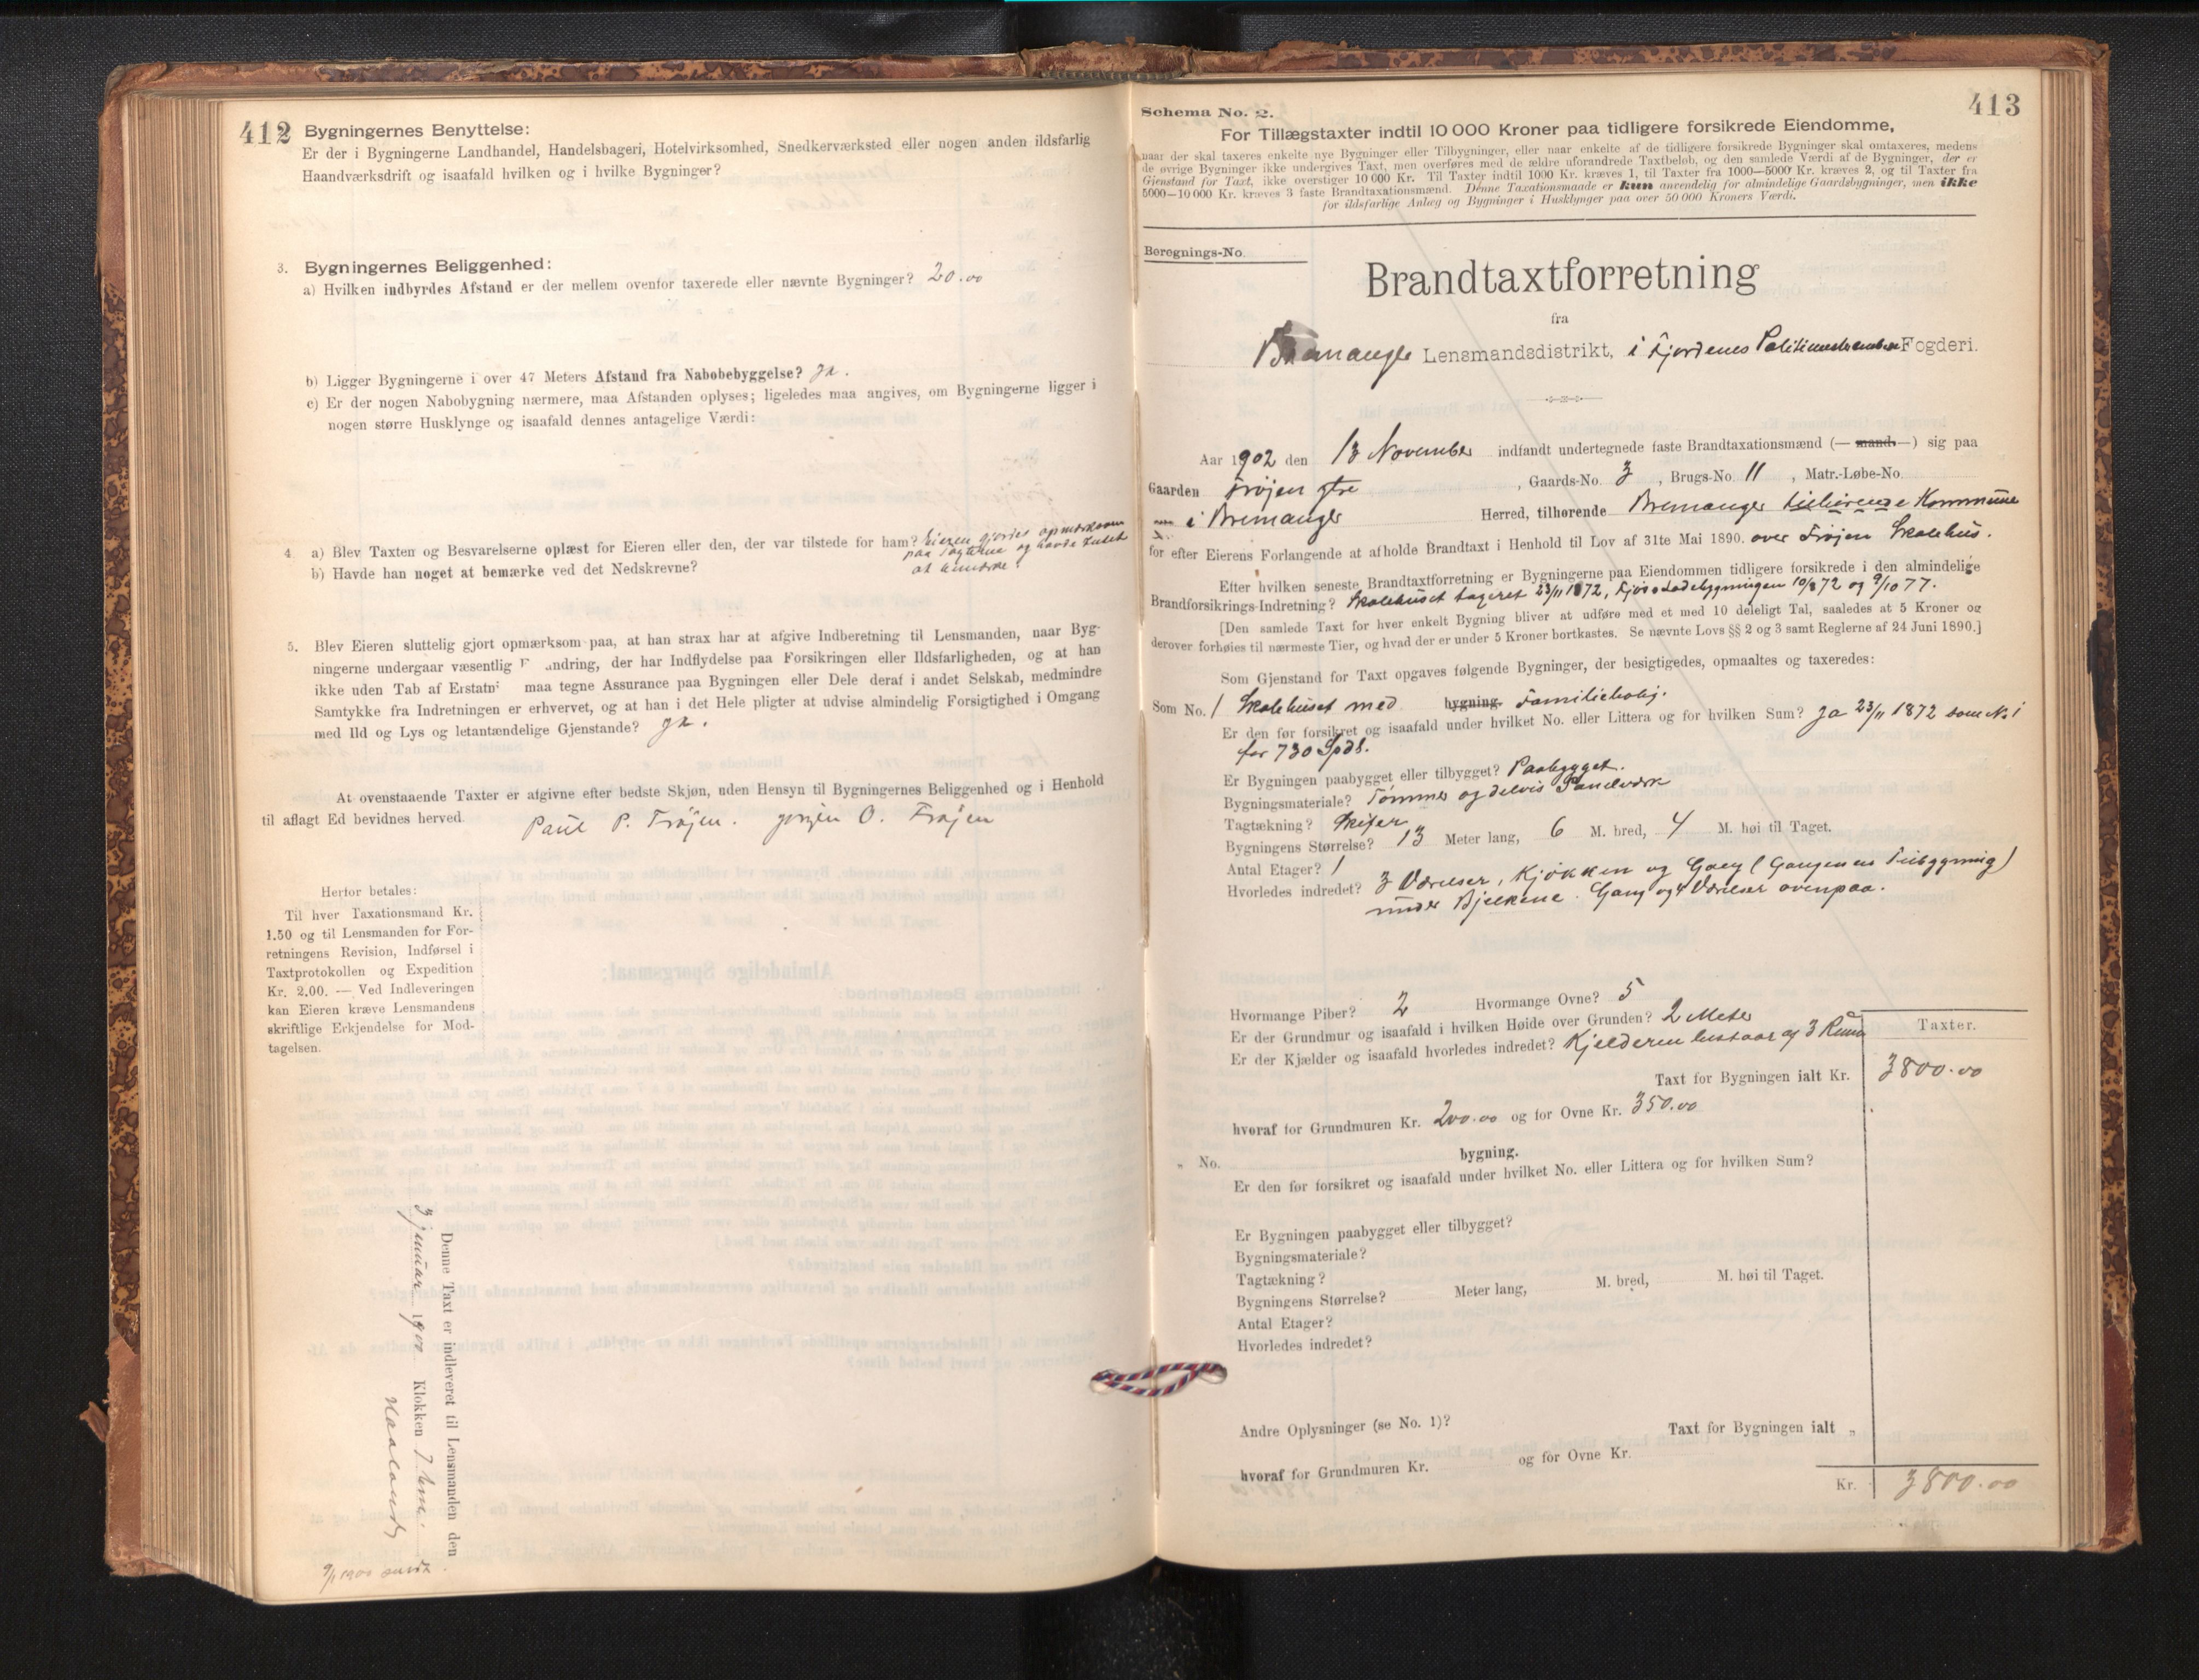 412
Bygningernes Benyttelse:
Er der i Bygningerne Landhandel, Handelsbageri, Hotelvirksomhed, Snedkerværksted eller nogen anden ildsfarlig
Haandværksdrift og isaafald hvilken og i hvilke Bygninger?
3. Bygningernes Beliggenhed:
a) Hvilken indbyrdes Afstand er der mellem ovenfor taxerede eller nævnte Bygninger? 20.00
b) Ligger Bygningerne i over 47 Meters Afstand fra Nabobebyggelse? ja.
c) Er der nogen Nabobygning nærmere, maa Afstanden oplyses; ligeledes maa angives, om Bygningerne ligger i
nogen større Husklynge og isaafald dennes antagelige Værdi:
4. a) Blev Taxten og Besvarelserne oplæst for Eieren eller den, der var tilstede for ham? Eieren gjordes opmærksom
paa Taxterne og havde Intet
b) Havde han noget at bemærke ved det Nedskrevne? at bemærke.
5. Blev Eieren sluttelig gjort opmærksom paa, at han strax har at afgive Indberetning til Lensmanden, naar Byg-
ningerne undergaar væsentlig F andring, der har Indflydelse paa Forsikringen eller Ildsfarligheden, og at han
ikke uden Tab af Erstatni maa tegne Assurance paa Bygningen eller Dele deraf i andet Selskab, medmindre
Samtykke fra Indretningen er erhvervet, og at han i det Hele pligter at udvise almindelig Forsigtighed i Omgang
med Ild og Lys og letantændelige Gjenstande? ja.
At ovenstaaende Taxter er afgivne efter bedste Skjøn, uden Hensyn til Bygningernes Beliggenhed og i Henhold
til aflagt Ed bevidnes herved.
Paul P. Frøjen. Jørgen O. Frøjen
Herfor betales:
Til hver Taxationsmand Kr.
1.50 og til Lensmanden for For-
retningens Revision, Indførsel i
Taxtprotokollen og Expedition
Kr. 2.00. — Ved Indleveringen
kan Eieren kræve Lensmandens
skriftlige Erkjendelse for Mod-
tagelsen.
Denne Taxt er indleveret til Lensmanden den
3 januar 1900 Klokken 7
9/1 1900 sendt.
413
Schema No. 2.
For Tillægstaxter indtil 10 000 Kroner paa tidligere forsikrede Eiendomme,
naar der skal taxeres enkelte nye Bygninger eller Tilbygninger, eller naar enkelte af de tidligere forsikrede Bygninger skal omtaxeres, medens
de øvrige Bygninger ikke undergives Taxt, men overføres med de ældre uforandrede Taxtbeløb, og den samlede Værdi af de Bygninger, der er
Gjenstand for Taxt, ikke overstiger 10 000 Kr. Til Taxter indtil 1000 Kr. kræves 1, til Taxter fra 1000—5000 Kr. kræves 2, og til Taxter fra
5000—10 000 Kr. kræves 3 faste Brandtaxationsmænd. Denne Taxationsmaade er kun anvendelig for almindelige Gaardsbygninger, men ikke
for ildsfarlige Anlæg og Bygninger i Husklynger paa over 50 000 Kroners Værdi.
Beregnings-No.
Brandtaxtforretning
fra
Bremanger Lensmandsdistrikt, i Fjordenes Politimesterembede Fogderi.
Aar 1902 den 13 November indfandt undertegnede faste Brandtaxationsmænd (— mand —) sig paa
Gaarden Frøjen ytre, Gaards-No. 3, Brugs-No. 11, Matr.-Løbe-No.
i Bremanger Herred, tilhørende Bremanger Kommune
for efter Eierens Forlangende at afholde Brandtaxt i Henhold til Lov af 31te Mai 1890. over Frøjen Skolehus.
Efter hvilken seneste Brandtaxtforretning er Bygningerne paa Eiendommen tidligere forsikrede i den almindelige
Brandforsikrings-Indretning? Skolehuset taxeret 23/11 1872, Fjøs & Ladebygningen 10/8 72 og 9/10 77.
[Den samlede Taxt for hver enkelt Bygning bliver at udføre med et med 10 deleligt Tal, saaledes at 5 Kroner og
derover forhøies til nærmeste Tier, og hvad der er under 5 Kroner bortkastes. Se nævnte Lovs §§ 2 og 3 samt Reglerne af 24 Juni 1890.]
Som Gjenstand for Taxt opgaves følgende Bygninger, der besigtigedes, opmaaltes og taxeredes:
Som No. 1 Skolehuset med bygning. Familiebolig.
Er den før forsikret og isaafald under hvilket No. eller Littera og for hvilken Sum? Ja 23/11 1872 som No 1
for 730 Spdl.
Er Bygningen paabygget eller tilbygget? Paabygget.
Bygningsmateriale? Tømmer og delvis Panelværk
Tagtækning? Skifer
Bygningens Størrelse? 13 Meter lang, 6 M. bred, 4 M. høi til Taget.
Antal Etager? 1
Hvorledes indredet? 3 Værelser, Kjøkken og Gang (Gangen en Tilbygning)
under Bjelkene. Gang og 4 Værelser ovenpaa.
Hvormange Piber? 2 Hvormange Ovne? 5
Er der Grundmur og isaafald i hvilken Høide over Grunden? 2 Meter
Er der Kjælder og isaafald hvorledes indredet? Kjelderen bestaar af 3 Rum
Taxter.
Taxt for Bygningen ialt Kr. 3800.00
hvoraf for Grundmuren Kr. 200.00 og for Ovne Kr. 350.00
„ No. bygning.
Er den før forsikret og isaafald under hvilket No. eller Littera og for hvilken Sum?
Er Bygningen paabygget eller tilbygget?
Bygningsmateriale?
Tagtækning?
Bygningens Størrelse? Meter lang, M. bred, M. høi til Taget.
Antal Etager?
Hvorledes indredet?
Andre Oplysninger (se No. 1)? Taxt for Bygningen ialt „
hvoraf for Grundmuren Kr. og for Ovne Kr.
Kr. 3800.00